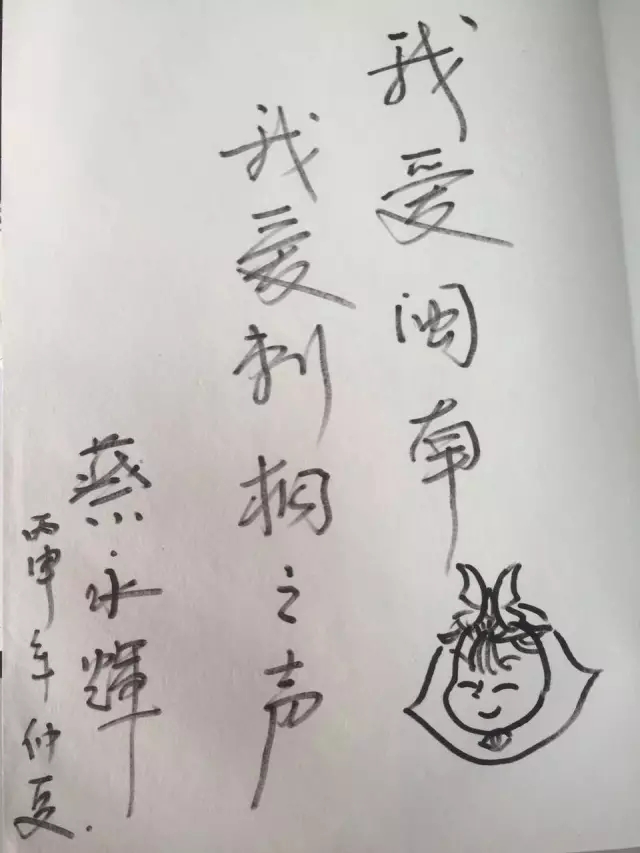 我爱闽南
我爱刺桐之声
蔡永辉
丙申年仲夏.